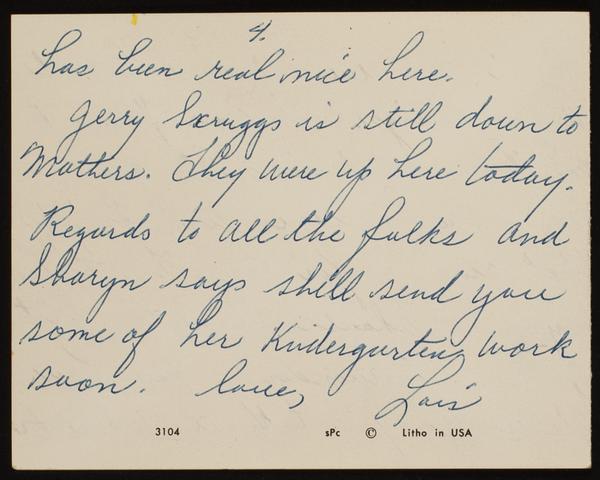 4.
has been real nice here.
Jerry Scruggs is still down to
Mothers. They were up here today.
Regards to all the folks and
Sharyn says shell send you
some of her Kindergarten work
soon. Love, Lois
3104 sPc © Litho in USA